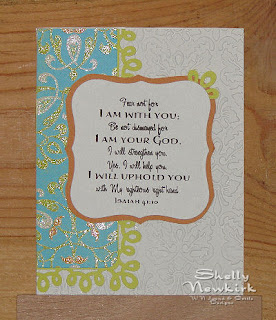 Fear not for
I AM WITH YOU;
Be not dismayed for
I AM YOUR GOD.
I will strengthen you.
Yes, I will help you.
I WILL UPHOLD YOU
with My righteous right hand
ISAIAH 41:10
Shelly
Newkirk
Designs